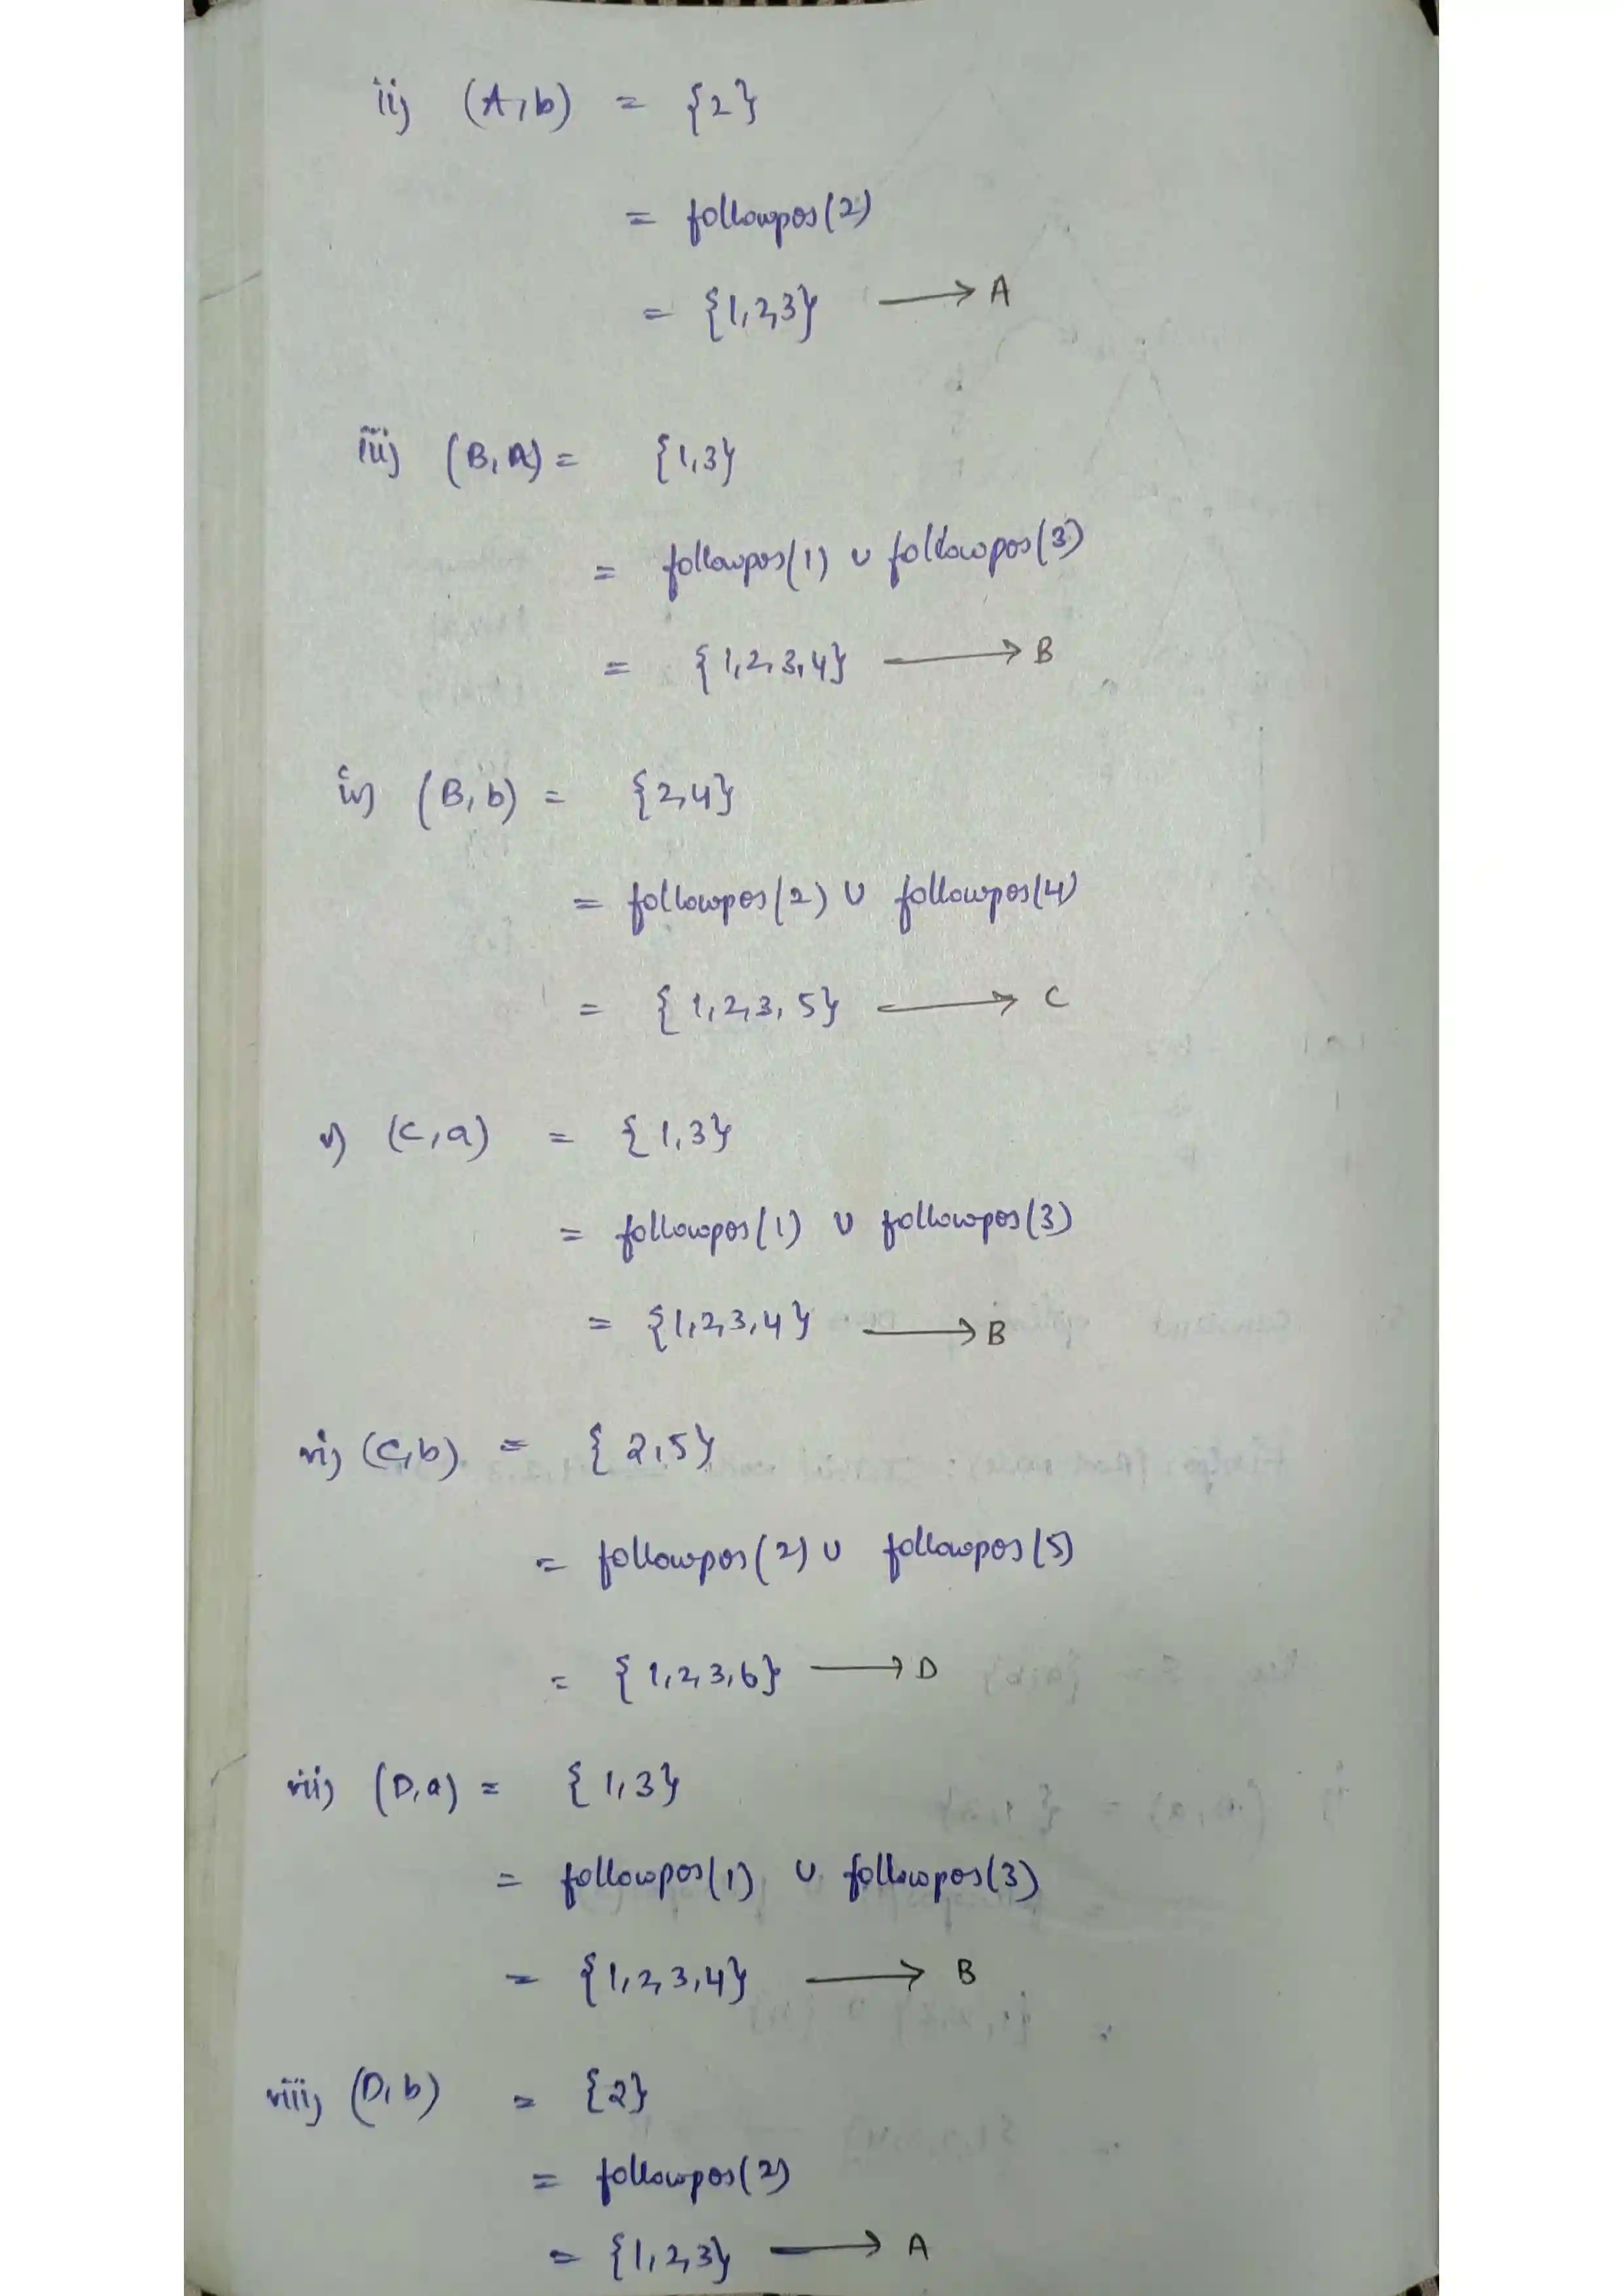 ii) (A,b) = {2}
= followpos(2)
= {1,2,3} → A
iii) (B,A) = {1,3}
= followpos(1) ∪ followpos(3)
= {1,2,3,4} → B
iv) (B,b) = {2,4}
= followpos(2) ∪ followpos(4)
= {1,2,3,5} → C
v) (C,a) = {1,3}
= followpos(1) ∪ followpos(3)
= {1,2,3,4} → B
vi) (C,b) = {2,5}
= followpos(2) ∪ followpos(5)
= {1,2,3,6} → D
vii) (D,a) = {1,3}
= followpos(1) ∪ followpos(3)
= {1,2,3,4} → B
viii) (D,b) = {2}
= followpos(2)
= {1,2,3} → A